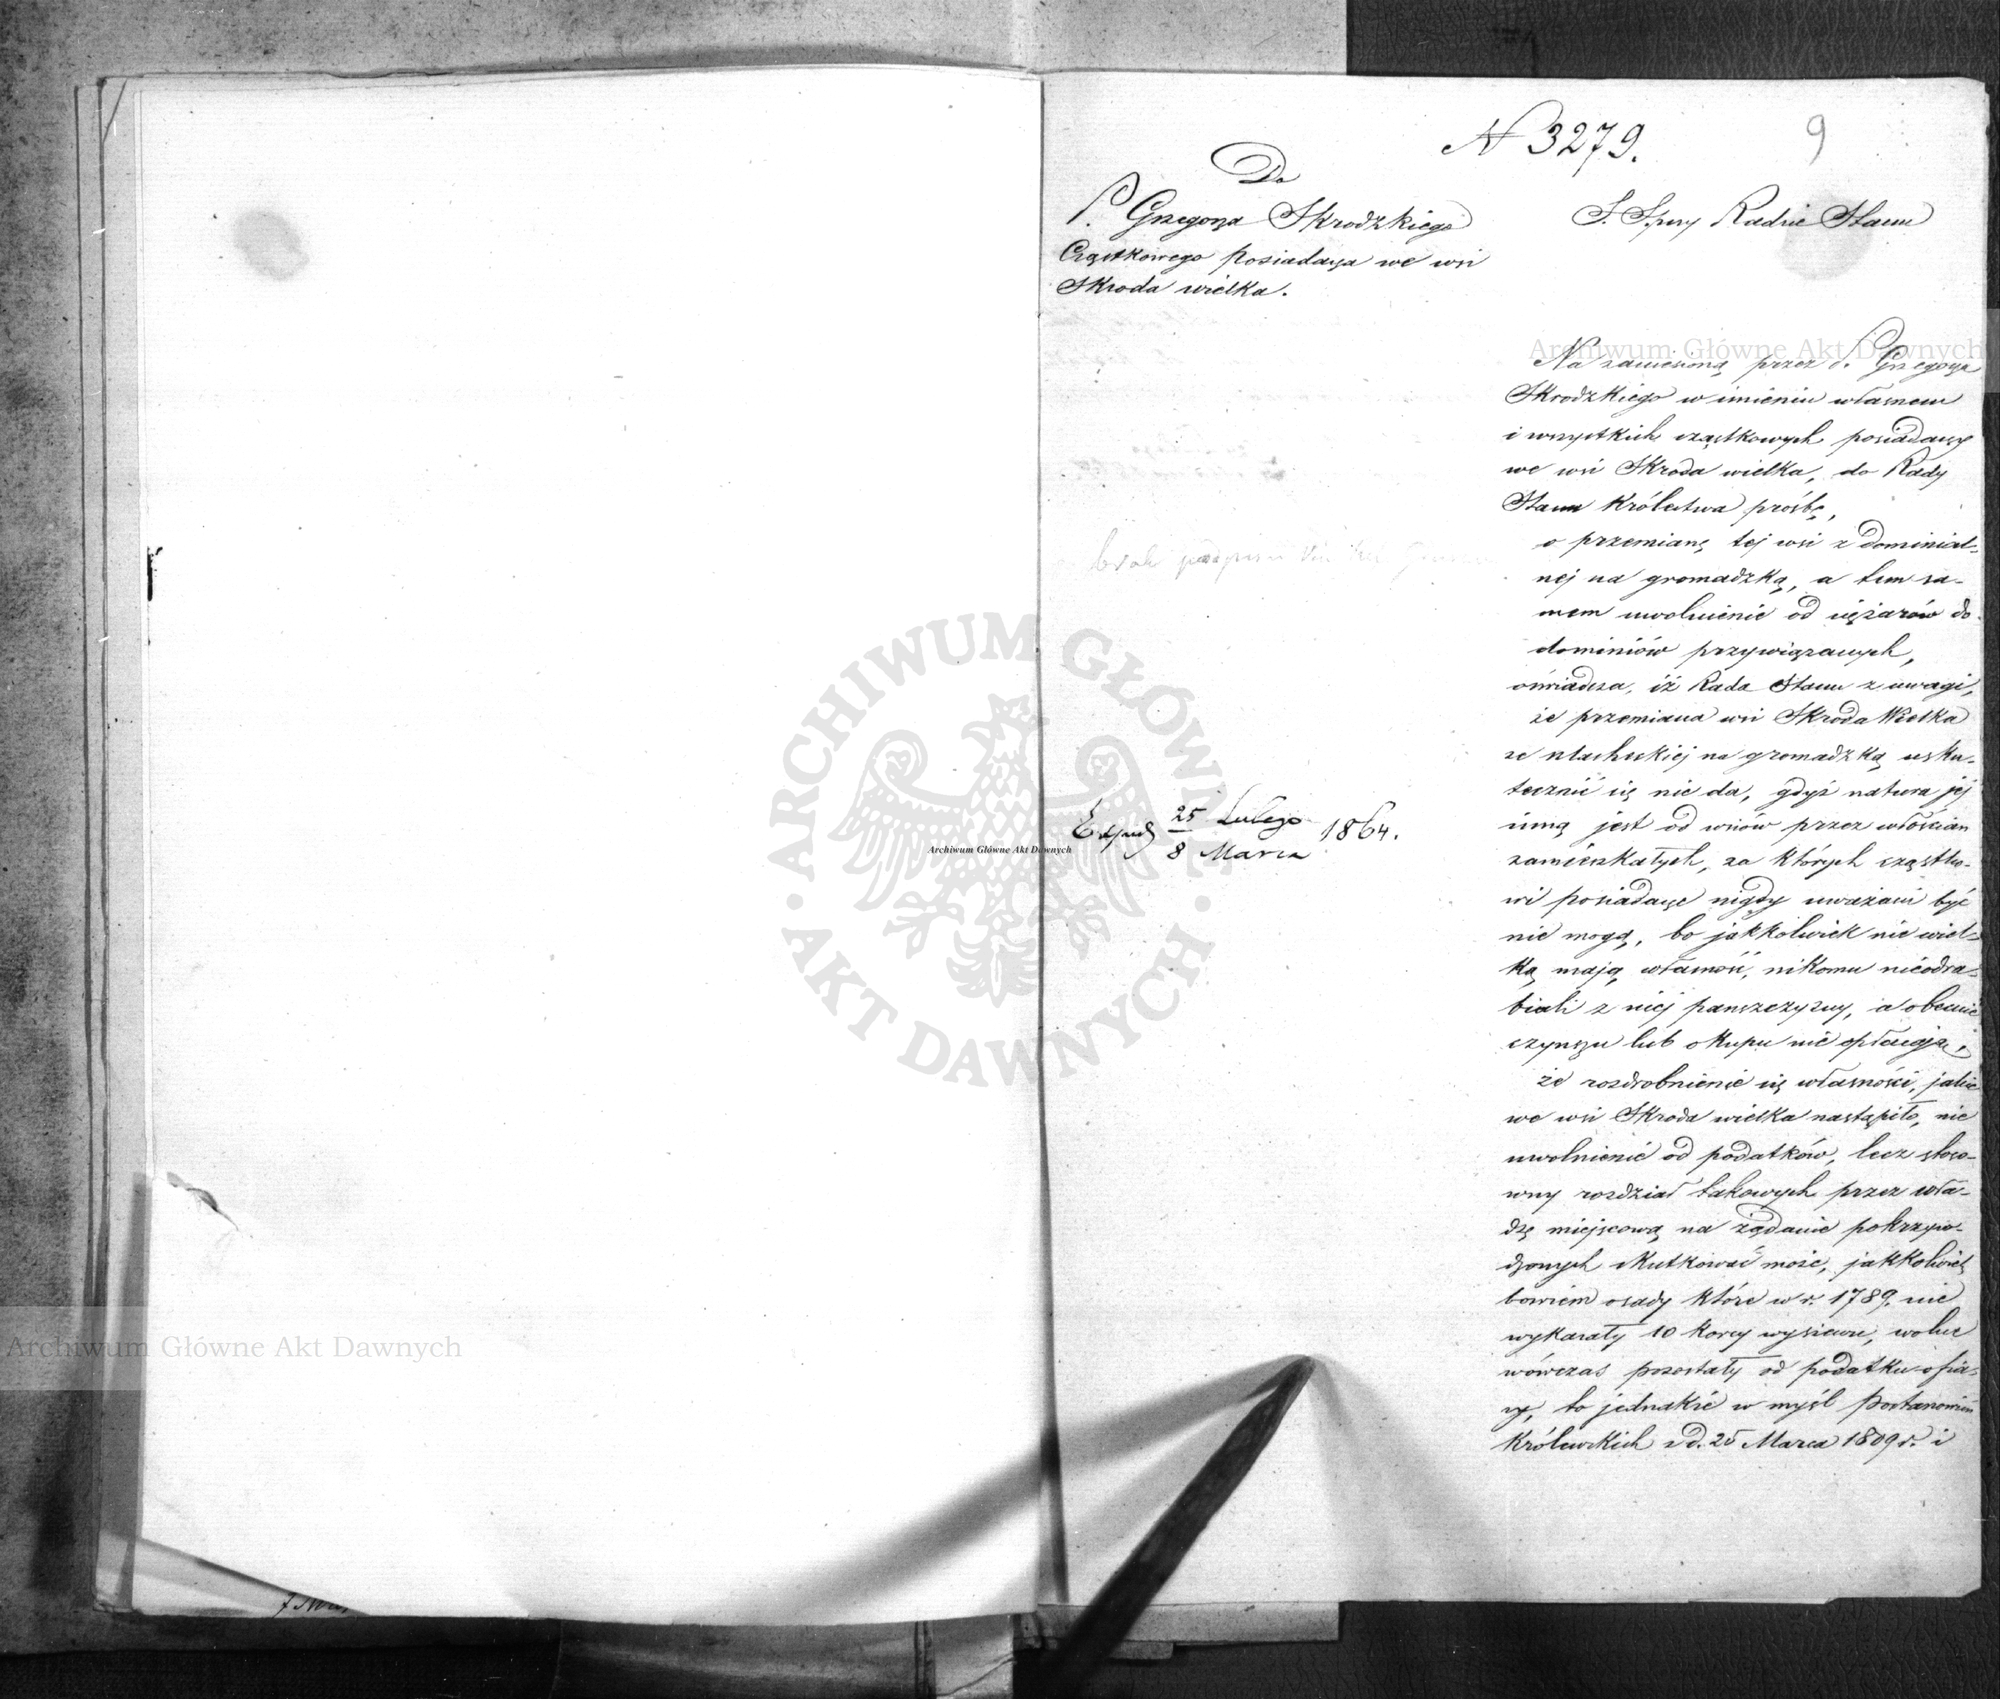 N 3279.
9
Do
P. Grzegorza Skrodzkiego
Cząstkowego posiadacza we wsi
Skroda wielka.
S. S. przy Radzie Stanu
Na zaniesioną przez P. Grzegorza
Skrodzkiego w imieniu własnem
i wszystkich cząstkowych posiadaczy
we wsi Skroda wielka, do Rady
Stanu Królestwa prośbę,
o przemianę tej wsi z dominial-
nej na gromadzką, a tem sa-
mem uwolnienie od ciężarów do
dominiów przywiązanych,
oświadcza, iż Rada Stanu z uwagi,
że przemiana wsi Skroda Wielka
ze szlacheckiej na gromadzką usku-
tecznić się nie da, gdyż natura jej
inną jest od wsiów przez włościan
zamieszkałych, za których cząstko-
wi posiadacze nigdy uważani być
nie mogą, bo jakkolwiek nie wiel-
ką mają własność, nikomu nieodra-
biali z niej pańszczyzny, a obecnie
czynszu lub okupu nie opłacają,
że rozdrobnienie się własności, jakie
we wsi Skroda wielka nastąpiło, nie
uwolnienie od podatków, lecz stoso-
wny rozdział takowych przez wła-
dzę miejscową na żądanie pokrzyw-
dzonych skutkować może, jakkolwiek
bowiem osady które w r. 1789. nie
wykazały 10 korcy wysiewu, wolne
wówczas pozostały od podatku ofia-
ry, to jednakże w myśl Postanowień
Królewskich z d. 25 Marca 1809 r. i
brak podpisu
Exped 25 Lutego 1864.
8 Marca
Archiwum Główne Akt Dawnych
Archiwum Główne Akt Dawnych
Archiwum Główne Akt Dawnych
ARCHIWUM GŁÓWNE
AKT DAWNYCH